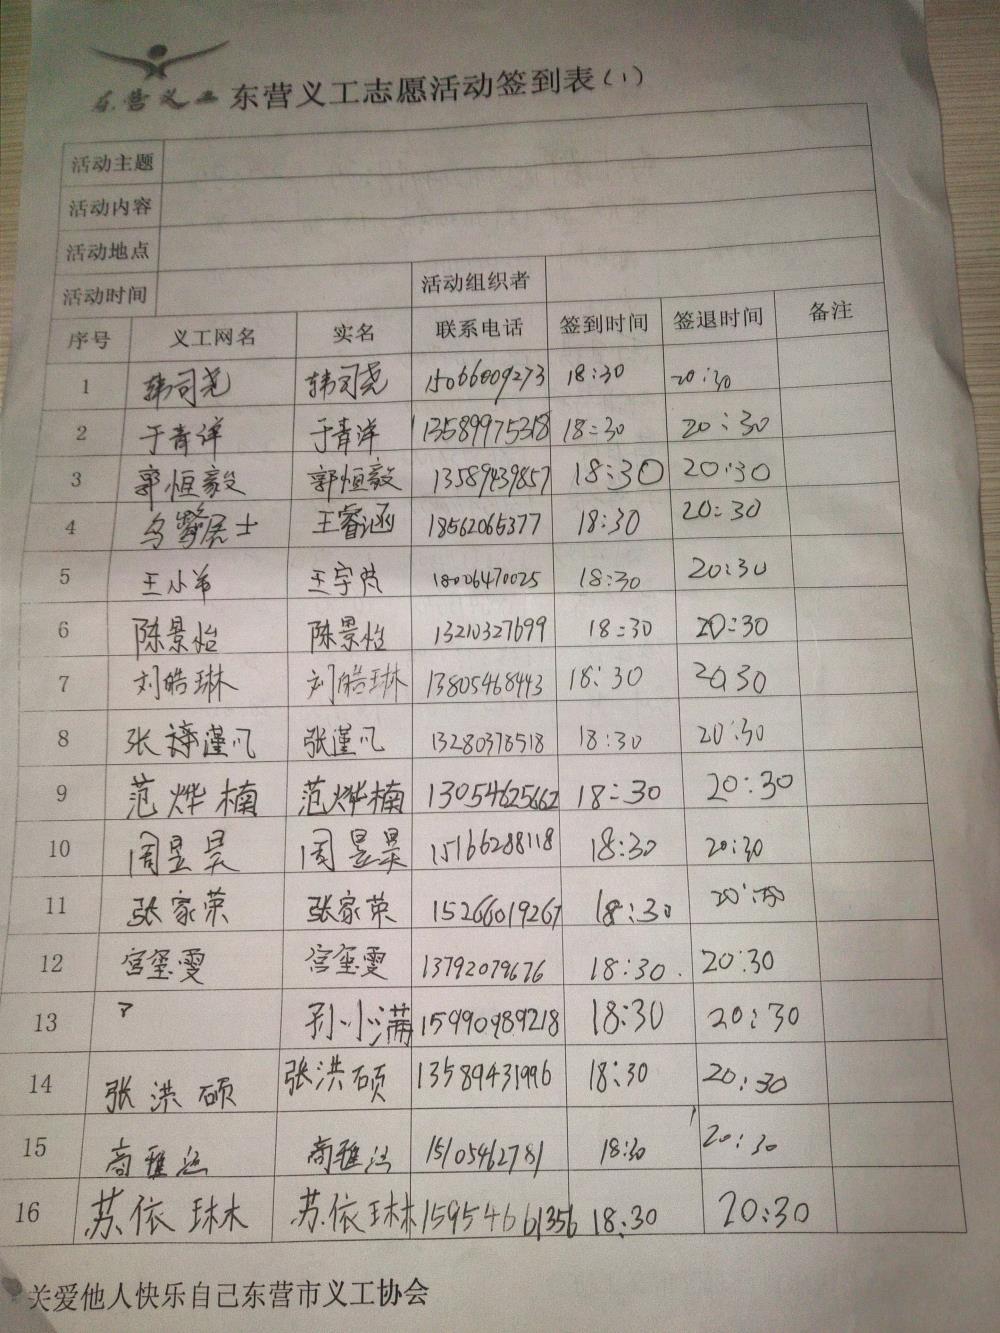 东营义工 东营义工志愿活动签到表(1)
活动主题
活动内容
活动地点
活动时间 活动组织者
序号 义工网名 实名 联系电话 签到时间 签退时间 备注
1 韩司尧 韩司尧 15066009273 18:30 20:30
2 于青洋 于青洋 13589975318 18:30 20:30
3 郭恒毅 郭恒毅 13589439857 18:30 20:30
4 居士 王睿涵 18562065377 18:30 20:30
5 王小芾 王宇芃 18006470025 18:30 20:30
6 陈景怡 陈景怡 13210327699 18:30 20:30
7 刘皓琳 刘皓琳 13805468443 18:30 20:30
8 张谨凡 张谨凡 13280378518 18:30 20:30
9 范烨楠 范烨楠 13054625662 18:30 20:30
10 周昱昊 周昱昊 15166288118 18:30 20:30
11 张家荣 张家荣 15266019267 18:30 20:30
12 宫玺雯 宫玺雯 13792079676 18:30 20:30
13 孙小满 15990989218 18:30 20:30
14 张洪硕 张洪硕 13589431996 18:30 20:30
15 高雅 高雅 15105462781 18:30 20:30
16 苏依琳 苏依琳 15954661356 18:30 20:30
关爱他人快乐自己东营市义工协会